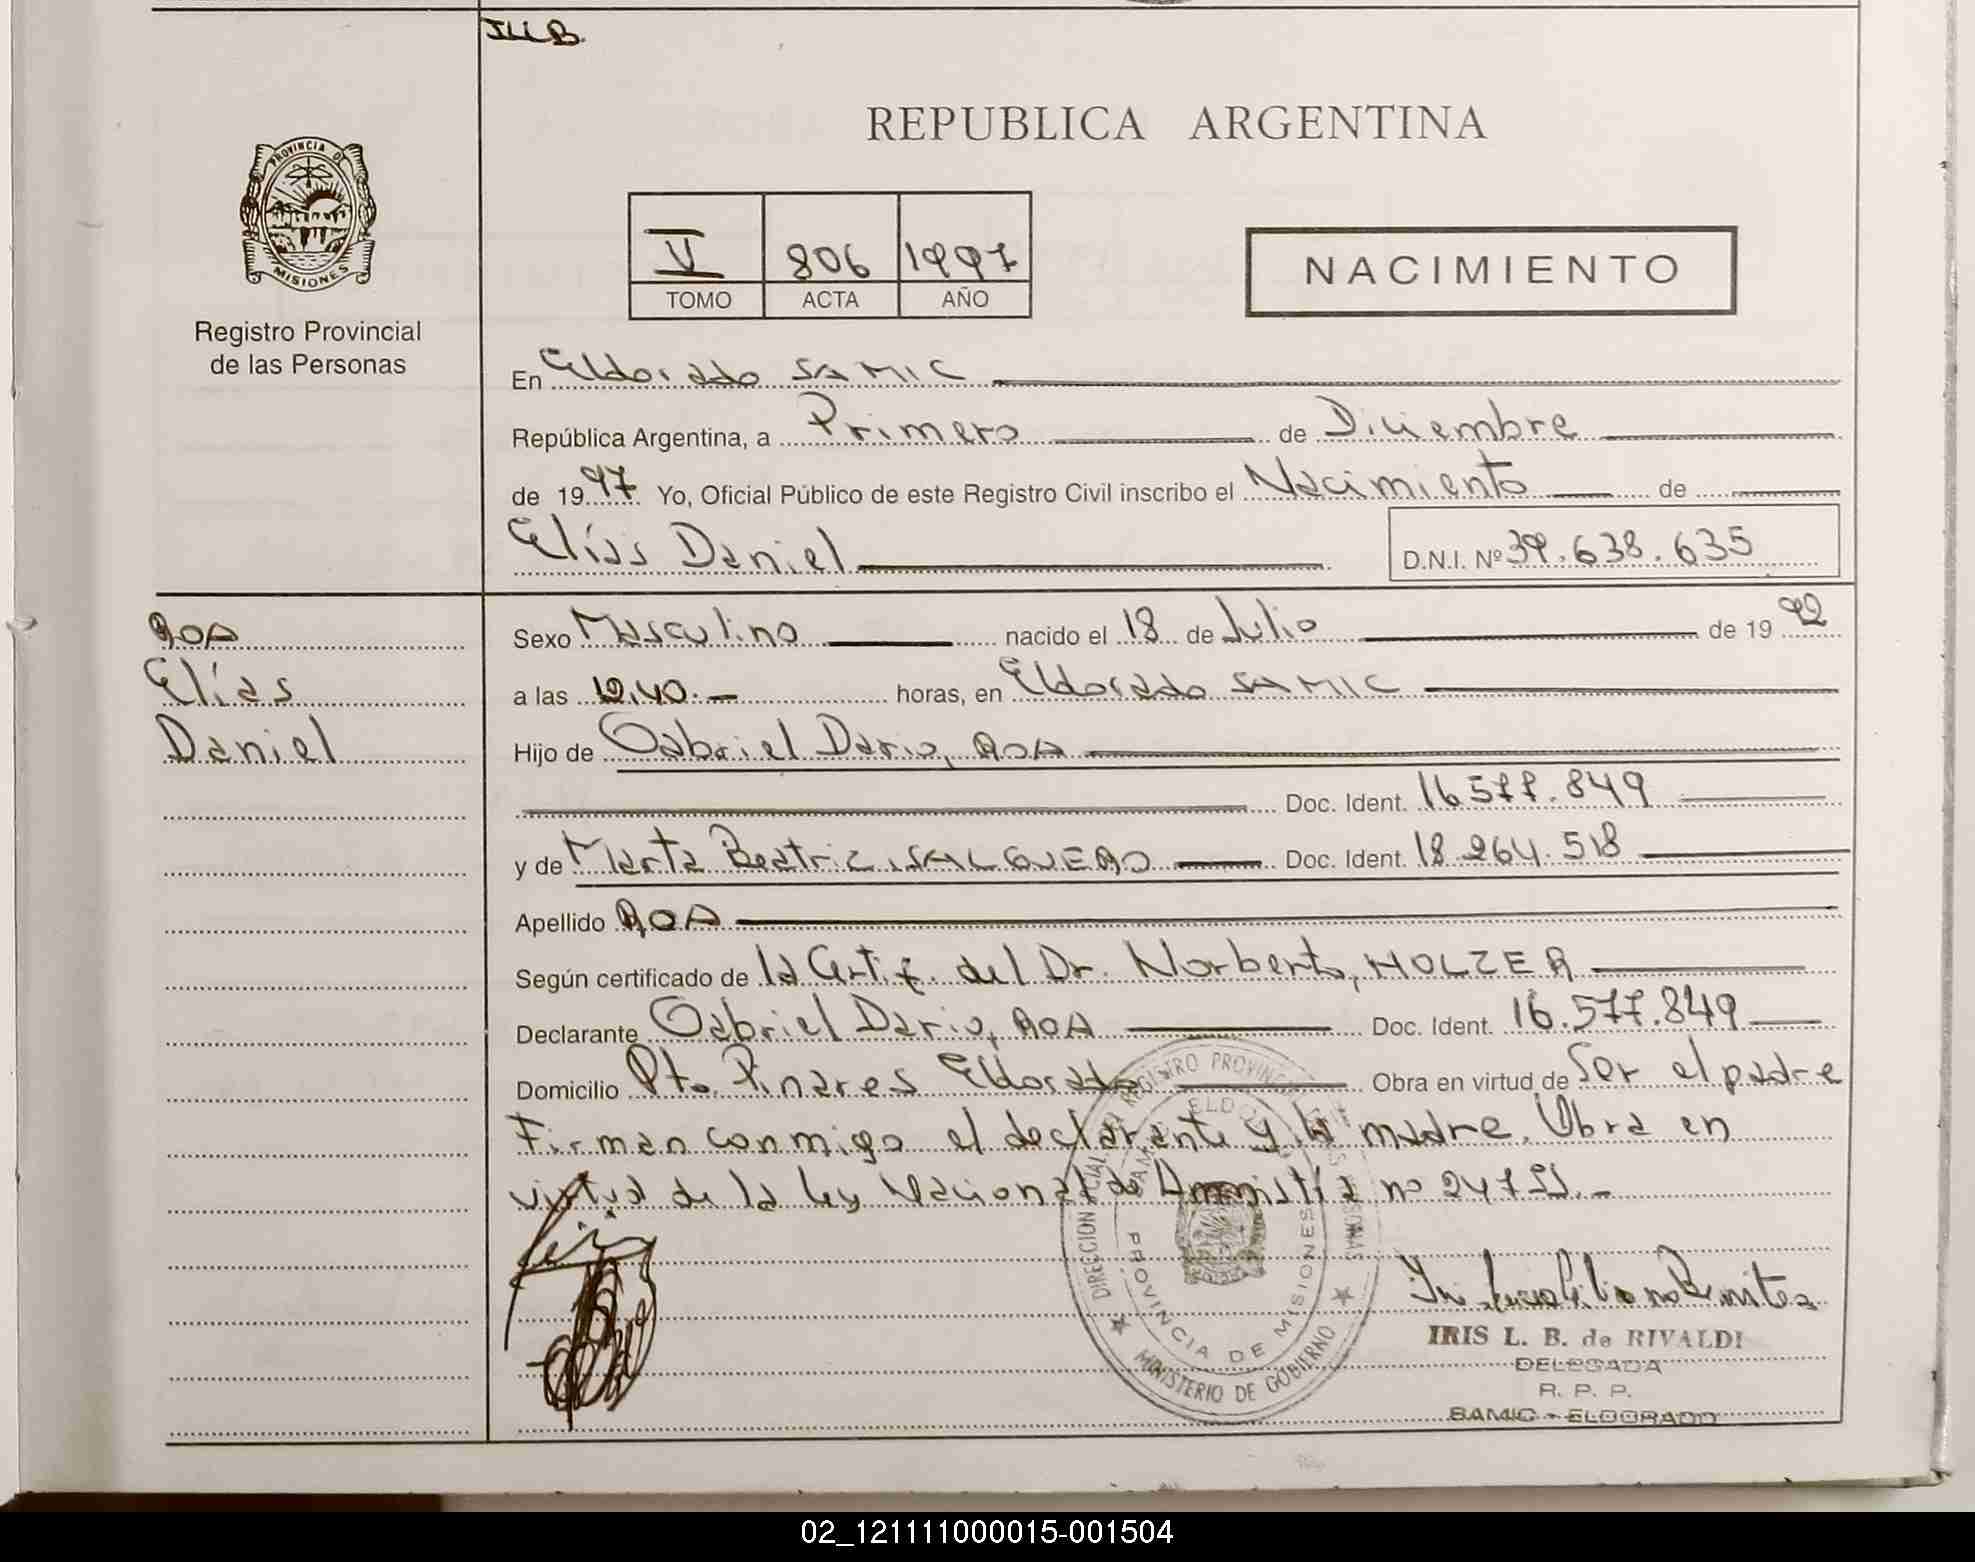 ILLB.
REPUBLICA ARGENTINA
PROVINCIA DE
MISIONES
Registro Provincial
de las Personas
V 806 1997
TOMO ACTA AÑO
NACIMIENTO
En Eldorado SAMIC
República Argentina, a Primero de Diciembre
de 1997 Yo, Oficial Público de este Registro Civil inscribo el Nacimiento de
Elías Daniel
D.N.I. Nº 39.638.635
ROA
Elías
Daniel
Sexo Masculino nacido el 18 de Julio de 1992
a las 12,40.- horas, en Eldorado SAMIC
Hijo de Gabriel Dario, ROA
Doc. Ident. 16.577.849
y de Marta Beatriz, SALGUERO Doc. Ident. 18.264.518
Apellido ROA
Según certificado de la Certif. del Dr. Norberto, HOLZER
Declarante Gabriel Dario, ROA Doc. Ident. 16.577.849
Domicilio Pto. Pinares Eldorado Obra en virtud de Ser el padre
Firman conmigo el declarante y la madre. Obra en
virtud de la Ley Nacional de Amnistía no 24755.-
DIRECCION REGISTRO PROVINCIAL PERSONAS
SAMIC ELDORADO
PROVINCIA DE MISIONES
MINISTERIO DE GOBIERNO
IRIS L. B. de RIVALDI
DELEGADA
R. P. P.
SAMIC - ELDORADO
02_121111000015-001504